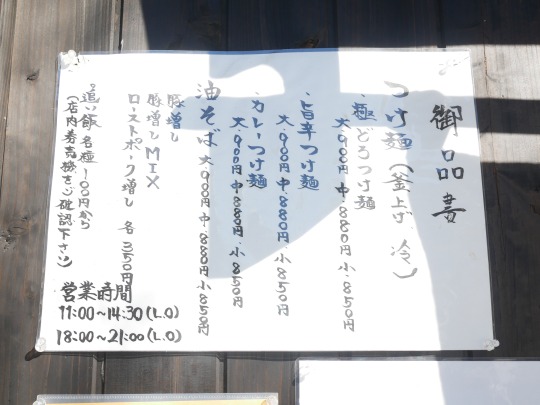 御品書
つけ麺(釜上げ、冷)
・極どろつけ麺
大・900円 中・880円 小・850円
・旨辛つけ麺
大・900円 中・880円 小・850円
・カレーつけ麺
大・900円 中・880円 小・850円
油そば 大・900円 中・880円 小・850円
豚増し
豚増しMIX
ローストポーク増し 各350円
追い飯 各種100円から
(店内券売機をご確認下さい)
営業時間
11:00~14:30(L.O)
18:00~21:00(L.O)